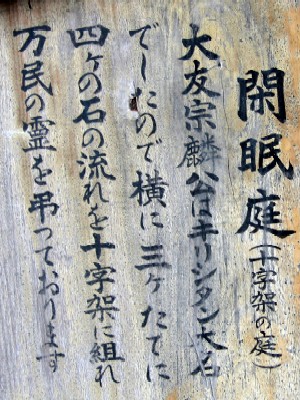 閑眠庭(十字架の庭)
大友宗麟公はキリシタン大名
でしたので横に三ヶたてに
四ヶの石の流れを十字架に組れ
万民の霊を弔つております